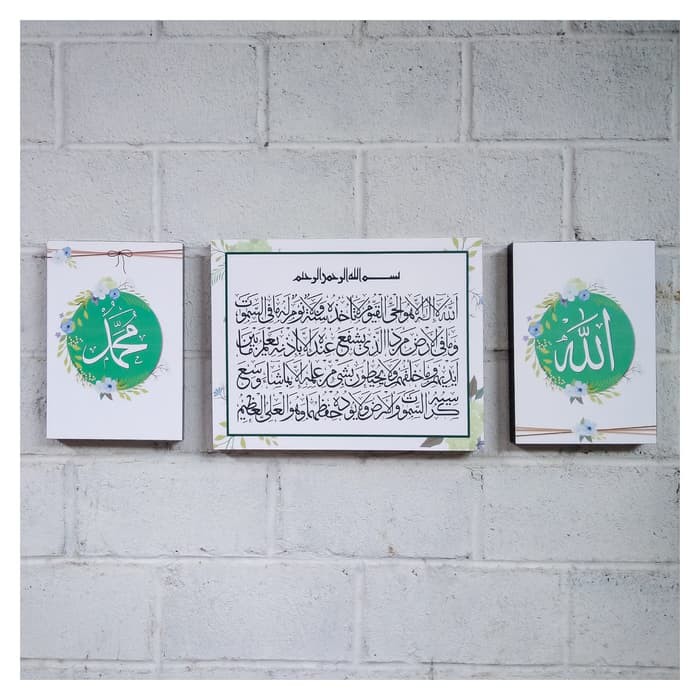 الله
بسم الله الرحمن الرحيم
الله لا إله إلا هو الحي القيوم لا تأخذه سنة ولا نوم له ما في السموات
وما في الأرض من ذا الذي يشفع عنده إلا بإذنه يعلم ما بين
أيديهم وما خلفهم ولا يحيطون بشيء من علمه إلا بما شاء وسع
كرسيه السموات والأرض ولا يؤده حفظهما وهو العلي العظيم
محمد